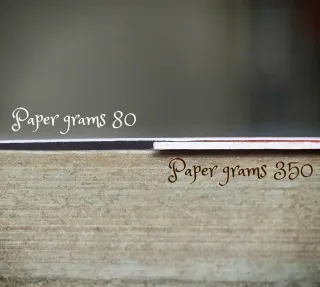 Paper grams 80
Paper grams 350